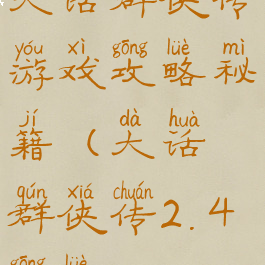 大话群侠传
yóu xì gōng lüè mì
游戏攻略秘
jí dà huà
籍(大话
qún xiá chuán
群侠传2.4
gōng lüè